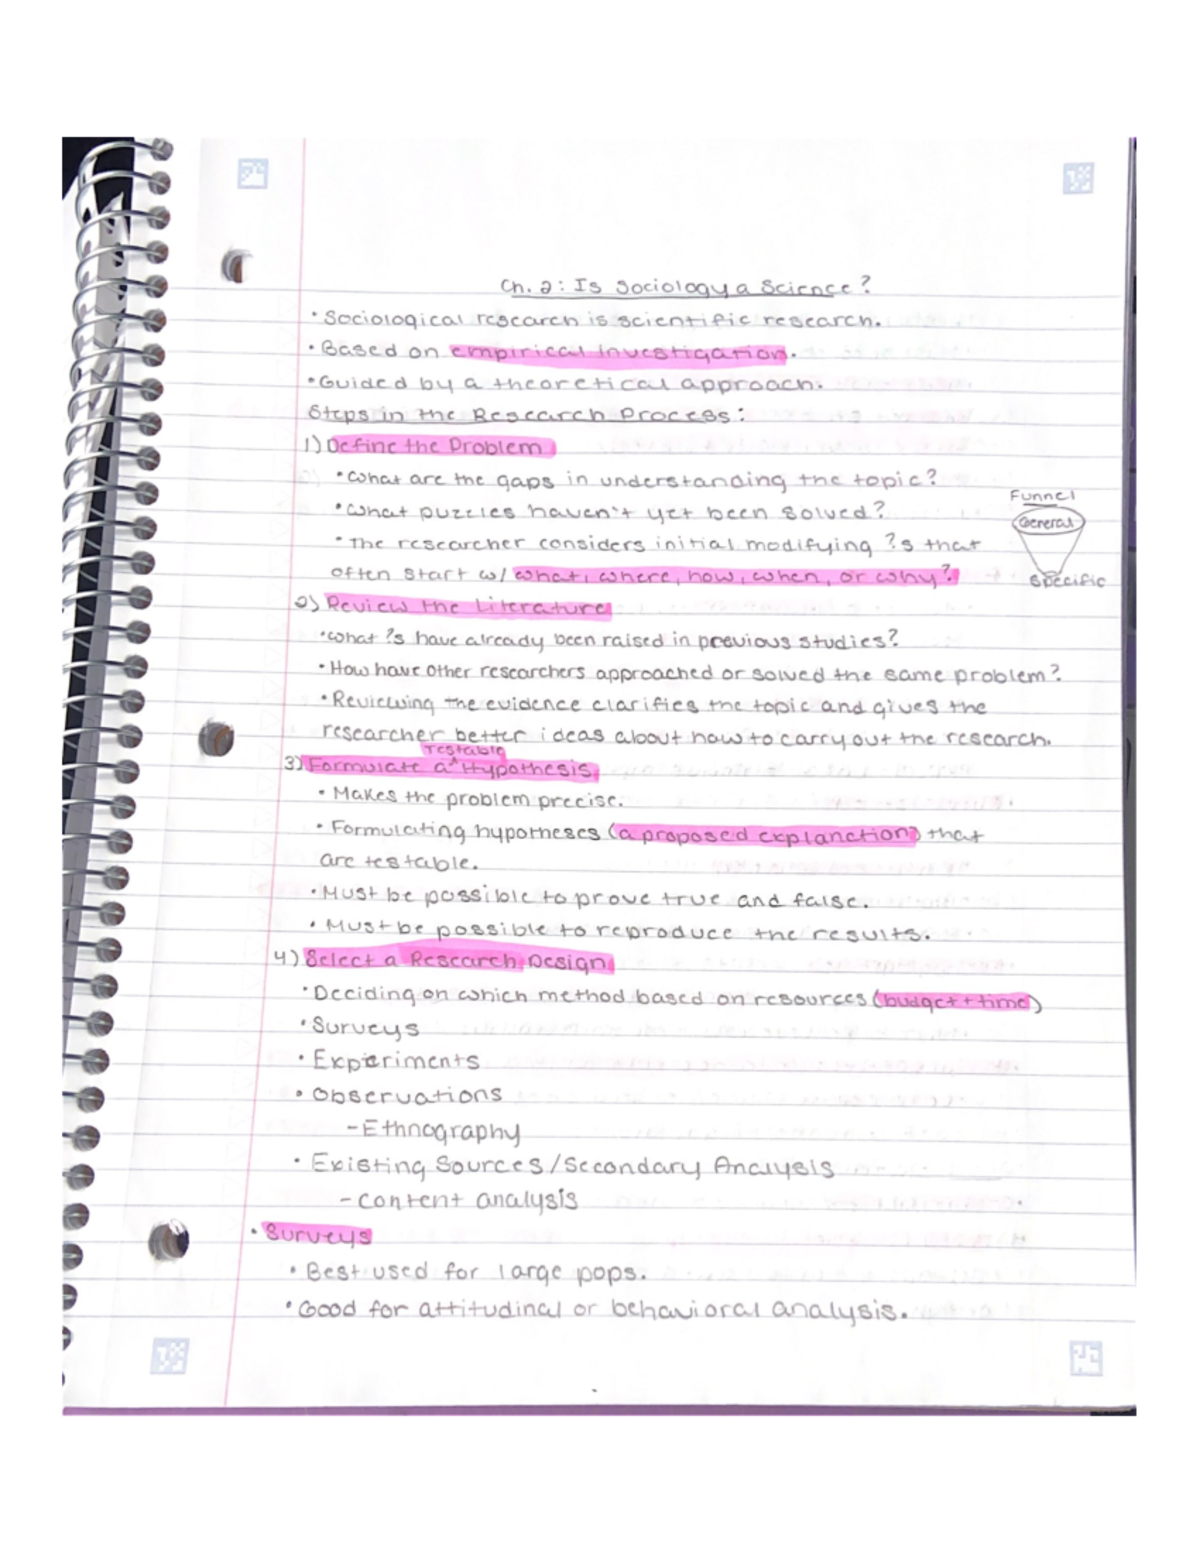 Ch. 2: Is Sociology a Science?
• Sociological research is scientific research.
• Based on empirical investigation.
• Guided by a theoretical approach.
Steps in the Research Process:
1) Define the Problem
• What are the gaps in understanding the topic?
• What puzzles haven't yet been solved?
• The researcher considers initial modifying ?s that
often start w/ what, where, how, when, or why?
Funnel
General
Specific
2) Review the Literature
• What ?s have already been raised in previous studies?
• How have other researchers approached or solved the same problem?
• Reviewing the evidence clarifies the topic and gives the
researcher better ideas about how to carry out the research.
3) Formulate a ^testable Hypothesis.
• Makes the problem precise.
• Formulating hypotheses (a proposed explanction) that
are testable.
• Must be possible to prove true and false.
• Must be possible to reproduce the results.
4) Select a Research Design
• Deciding on which method based on resources (budget + time)
• Surveys
• Experiments
• Observations
- Ethnography
• Existing Sources/Secondary Analysis
- Content analysis
• Surveys
• Best used for large pops.
• Good for attitudinal or behavioral analysis.